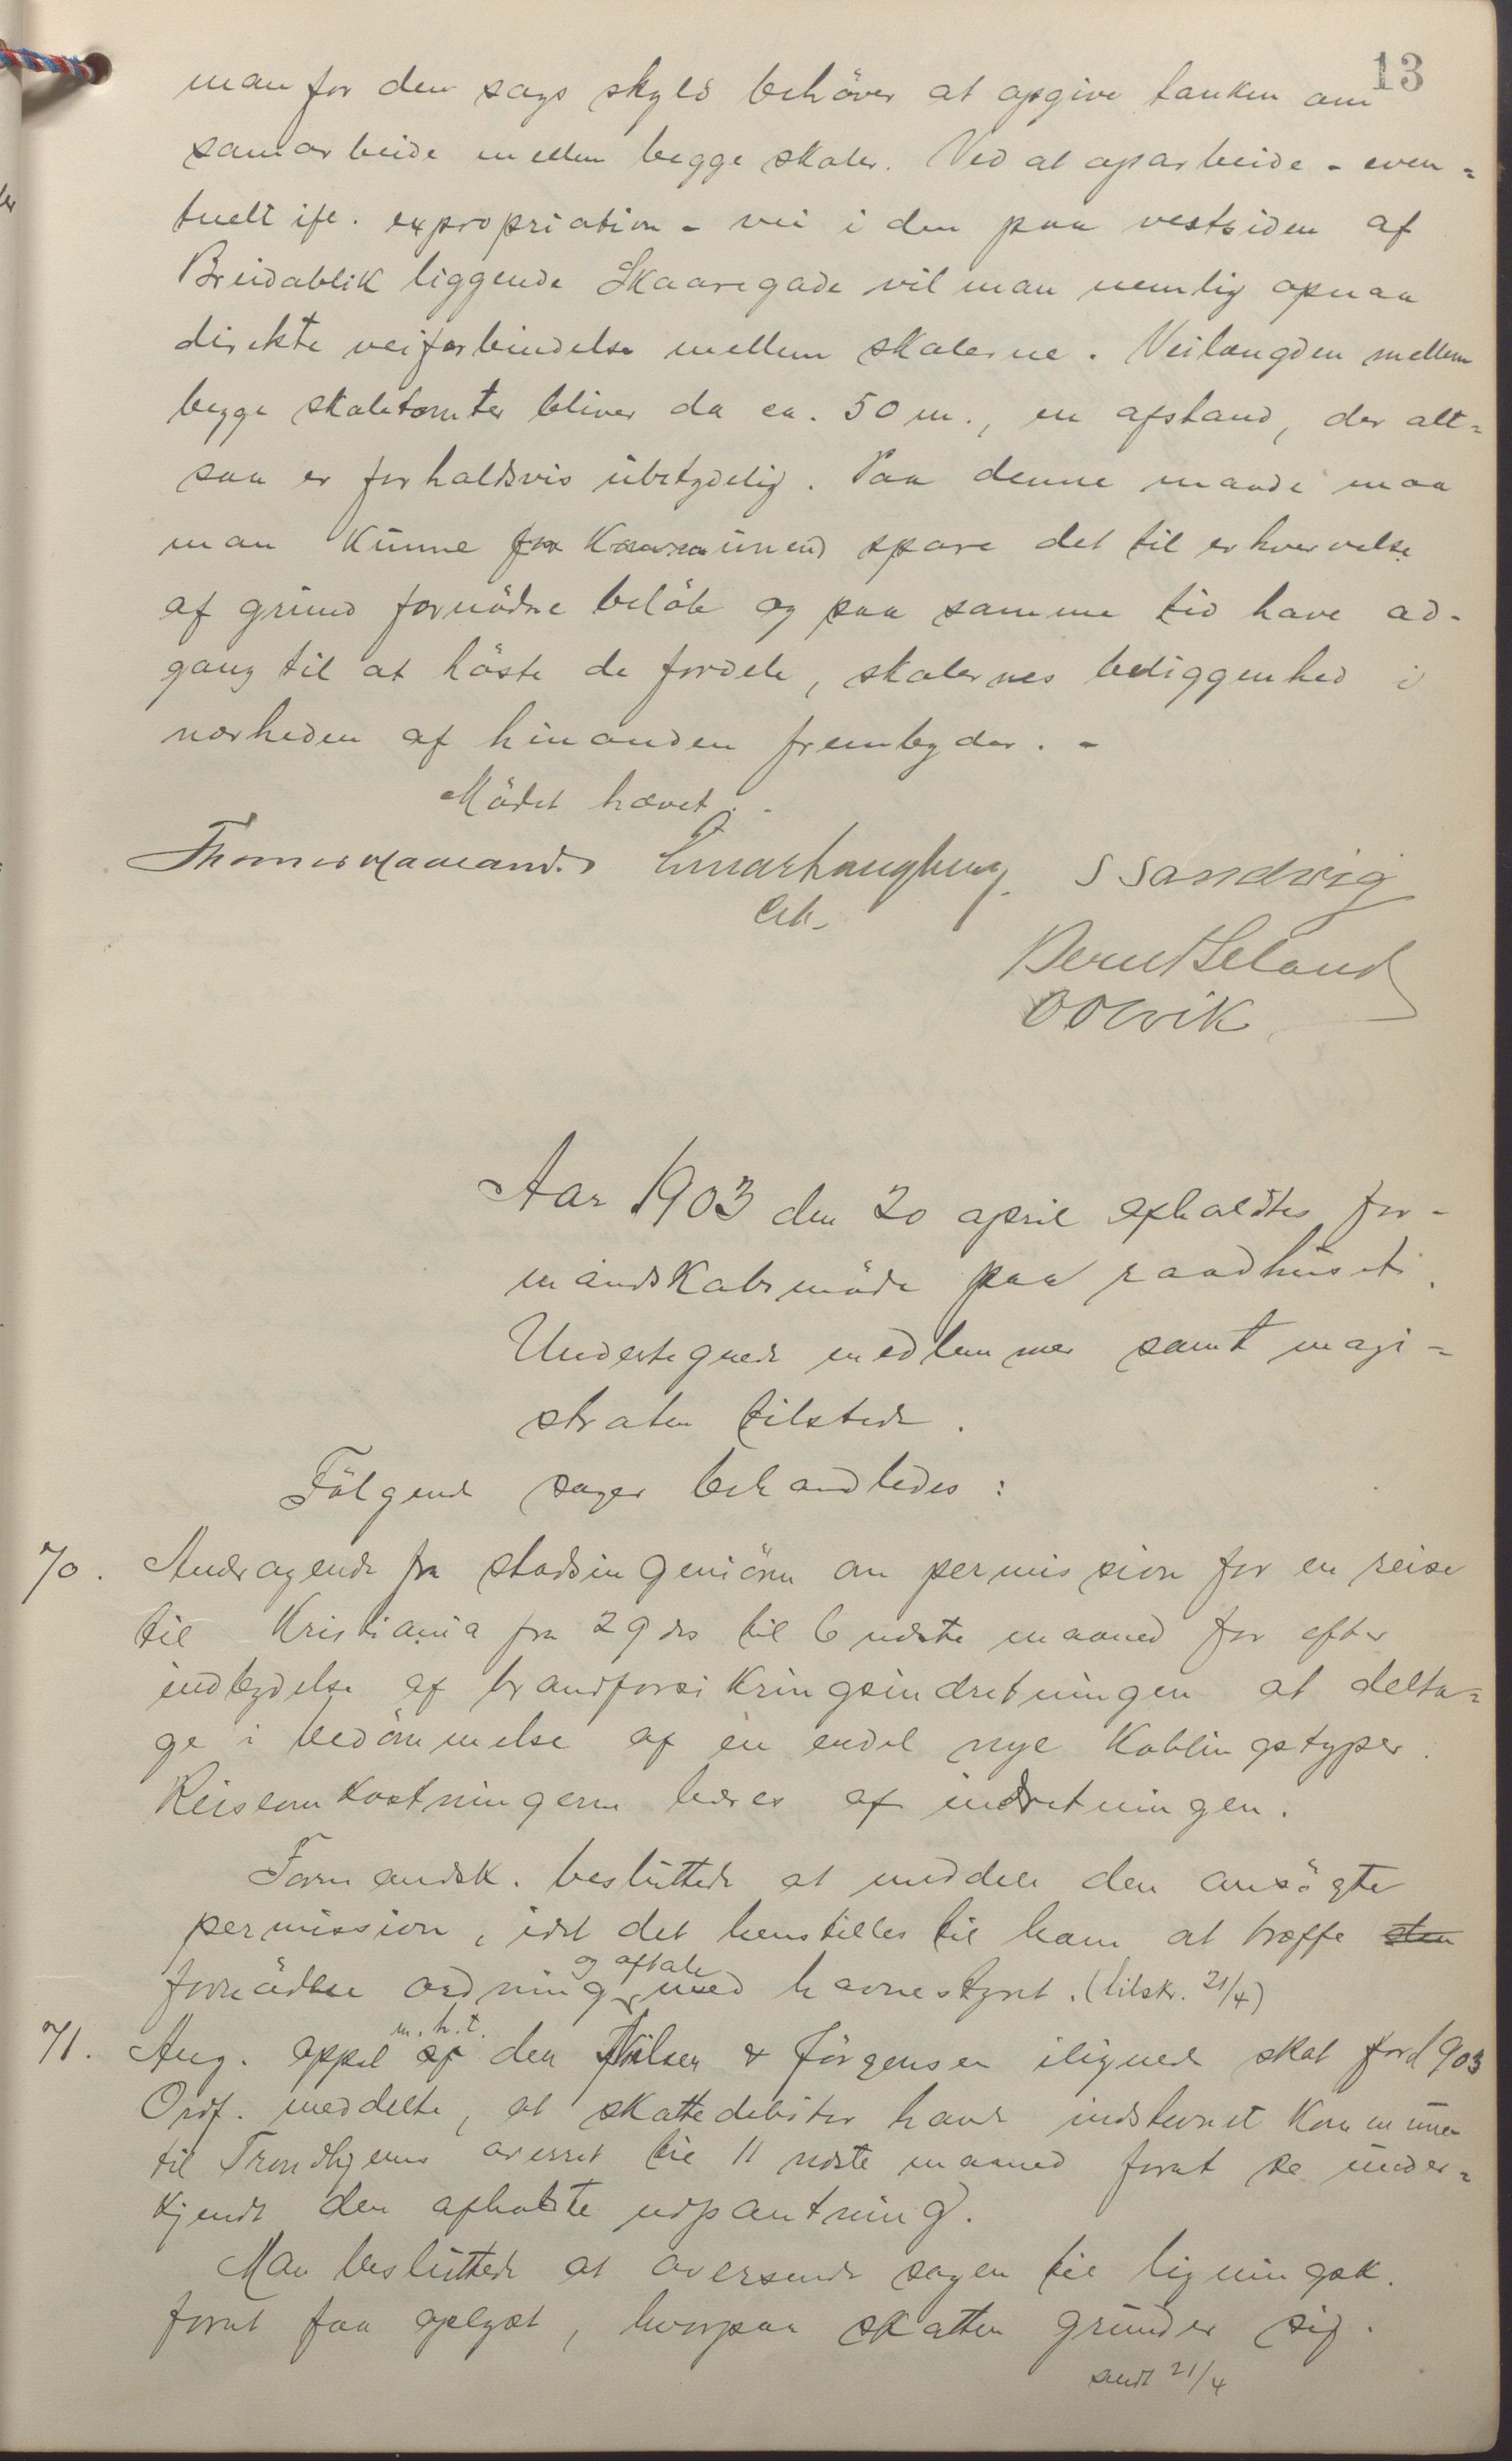 13
man for den sags skyld behöver at opgive tanken om
samarbeide mellem begge skoler. Ved at oparbeide - even-
tuelt ift. expropriation - vei i den paa vestsiden af
Breidablik liggende Skaaregade vil man nemlig opnaa
direkte veiforbindelse mellem skolerne. Veilængden mellem
begge skoletomter bliver da ca. 50 m., en afstand, der alt-
saa er forholdsvis ubetydelig. Paa denne maade maa
man kunne for kommunens spare det til erhvervelse
af grund fornödne belöb og paa samme tid have ad-
gang til at höste de fordele, skolernes beliggenhed i
nærheden af hinanden frembyder. -
Mödet hævet.
Thomas Einar Haugberg S Sandvig
Bernt Leland
O Olvik
Aar 1903 den 20 april afholdtes for-
mandskabsmöde paa raadhuset.
Undertegnede medlemmer samt magi-
straten tilstede.
Fölgende sager behandledes:
70. Andragende fra stadsingeniören om permission for en reise
til Kristiania fra 29 ds til 6 næste maaned for efter
indbydelse af brandforsikringsindretningen at delta-
ge i bedömmelse af en endel nye koblingstyper.
Reiseomkostningerne bæres af indretningen.
Formandsk. besluttede at meddele den ansögte
permission, idet det henstilles til ham at træffe den
fornödne ordning og aftale med havnestyret. (tilskr. 21/4)
71. Ang. appel af m.h.t. den Nilsen & Jörgensen ilignede skat for 1903
Ordf. meddelte, at skattedebitor havde indstevnet kommunen
til Trondhjems overret til 11 næste maaned forat se under-
kjendt den afholdte udpantning.
Man besluttede at oversende sagen til ligningsk.
forat faa oplyst, hvorpaa skatten grunder sig.
sendt 21/4